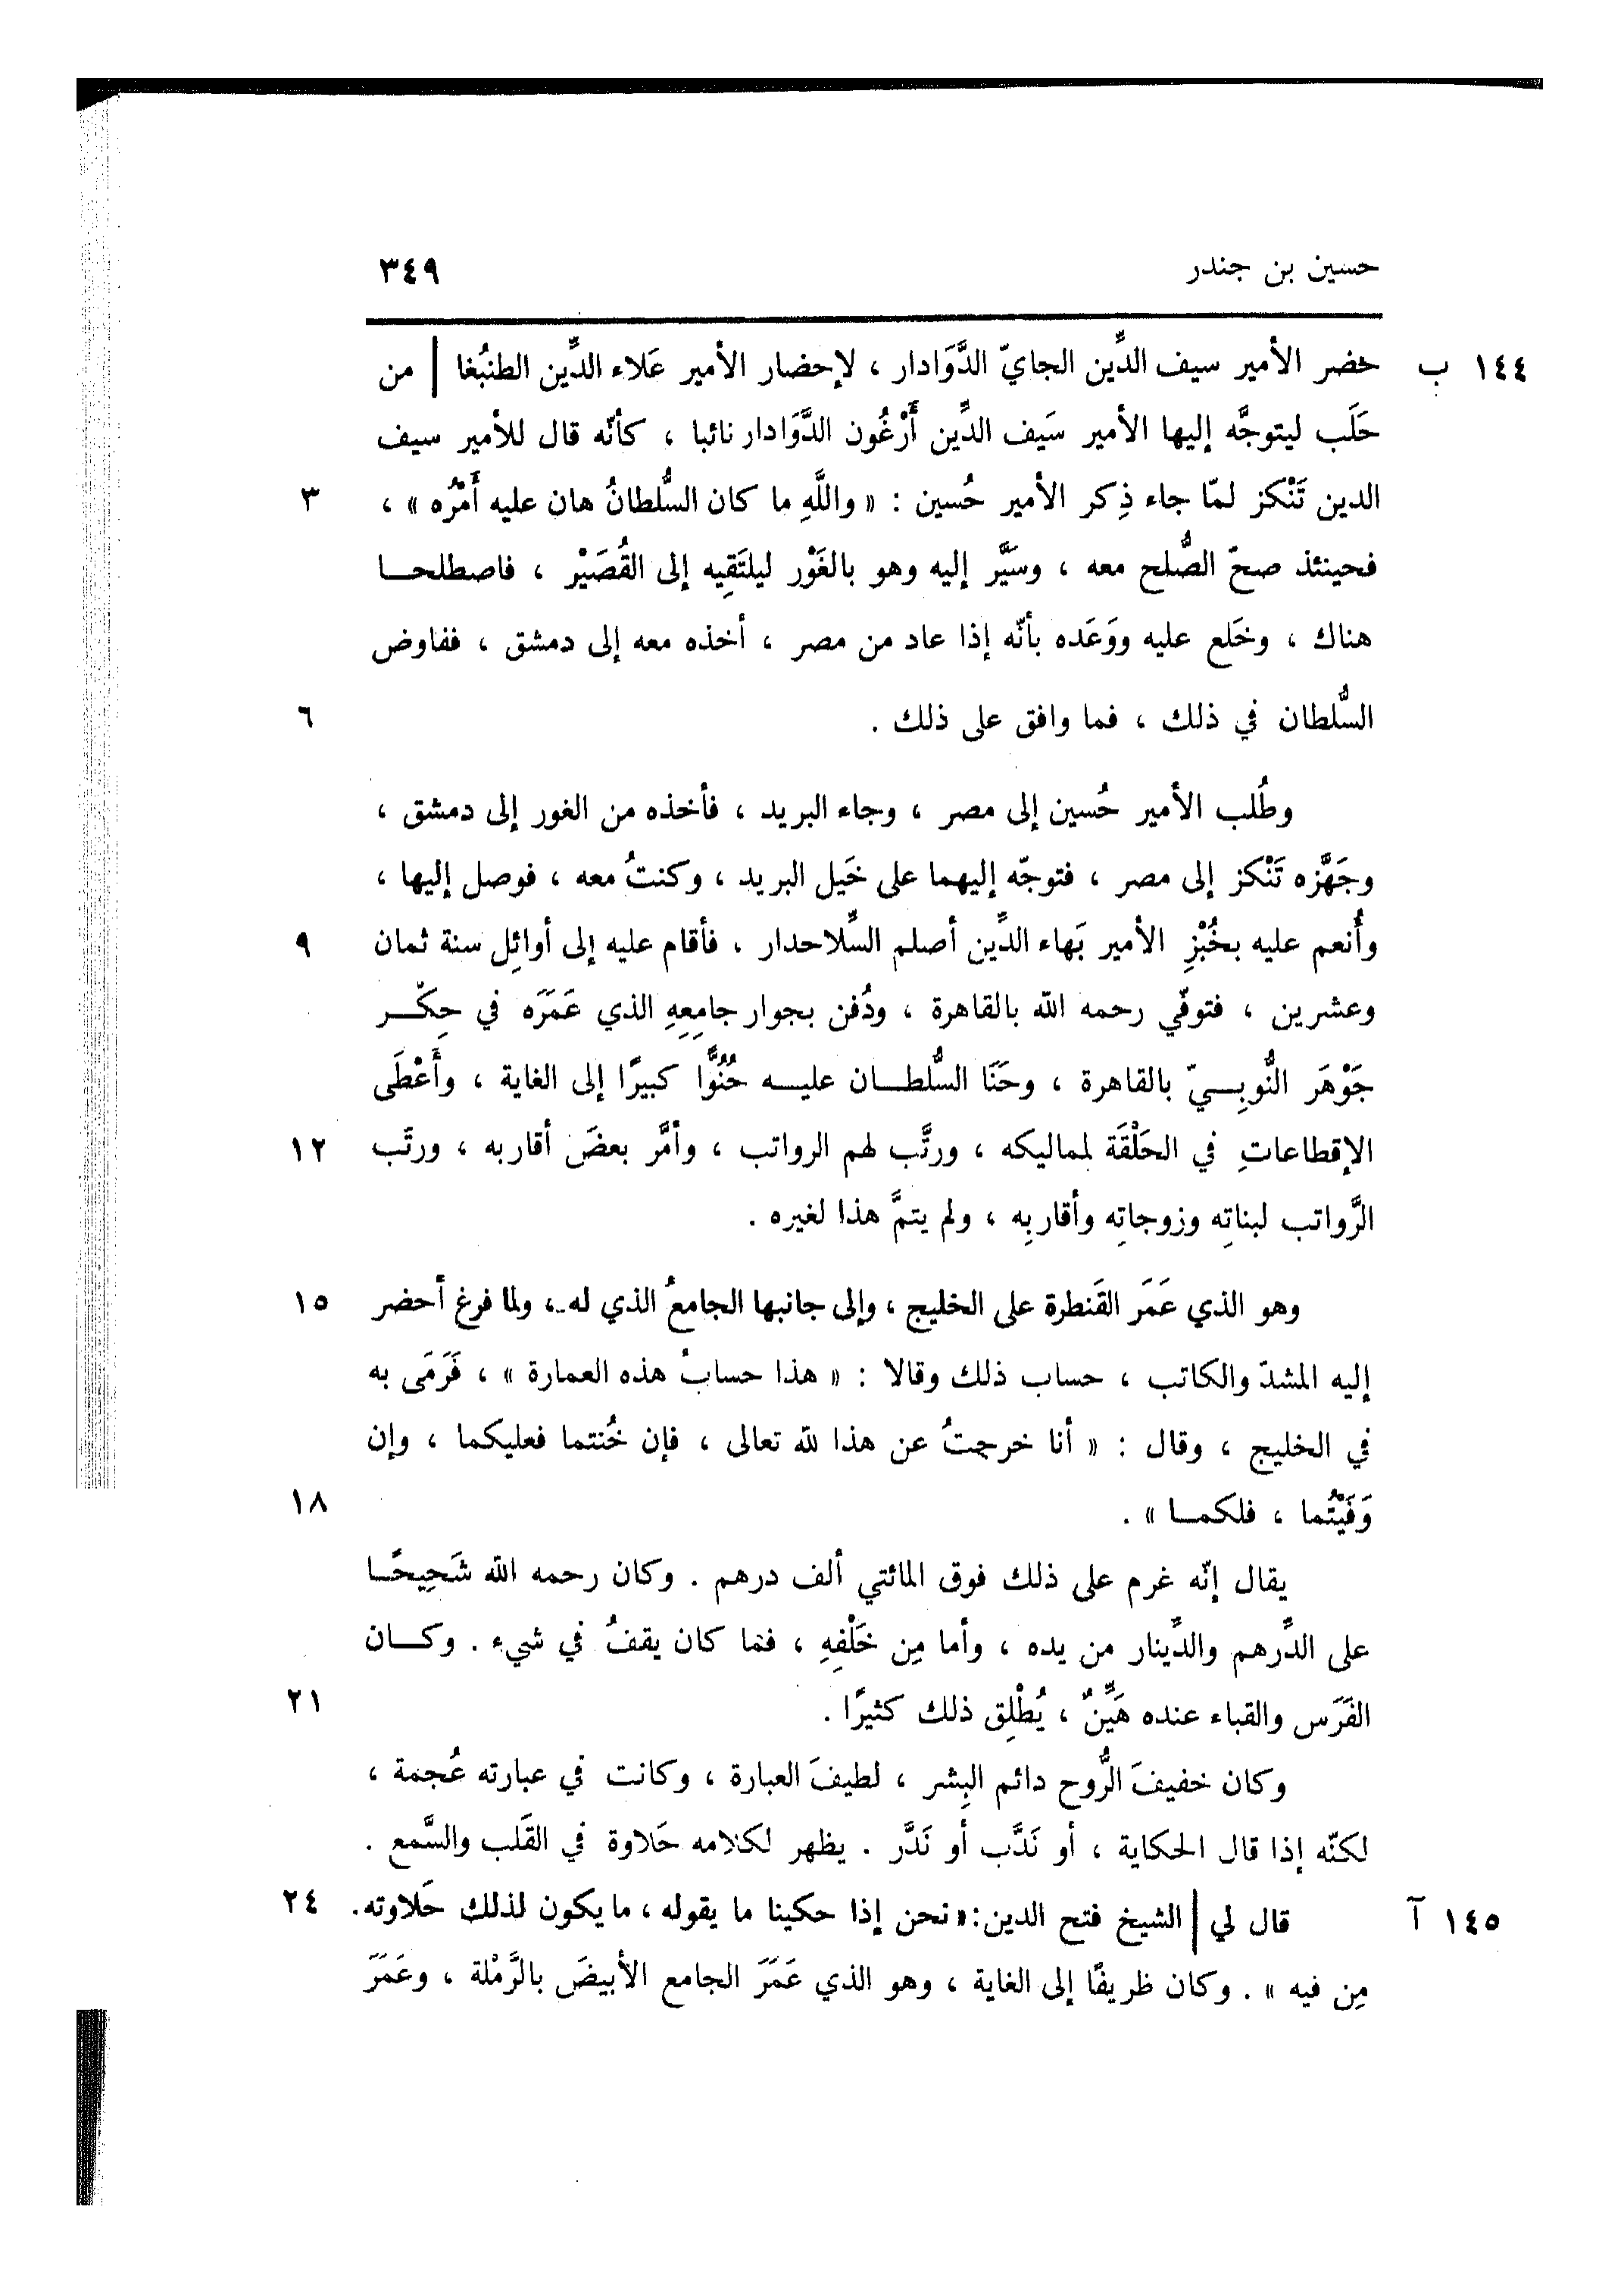 حسين بن جندر ٣٤٩
١٤٤ ب حضر الأمير سيف الدِّين الجايّ الدَّوَادار ، لإحضار الأمير عَلاء الدِّين الطنبُغا | من
حَلَب ليتوجَّه إليها الأمير سَيف الدِّين أَرْغُون الدَّوَادار نائبا ، كأنّه قال للأمير سيف
الدين تَنْكز لمّا جاء ذِكر الأمير حُسين : « واللَّهِ ما كان السُّلطانُ هان عليه أَمْرُه » ، ٣
فحينئذ صحّ الصُّلح معه ، وسَيَّر إليه وهو بالغَوْر ليلتَقِيه إلى القُصَيْر ، فاصطلحـا
هناك ، وخَلع عليه ووَعَده بأنّه إذا عاد من مصر ، أخذه معه إلى دمشق ، ففاوض
السُّلطان في ذلك ، فما وافق على ذلك . ٦
وطُلب الأمير حُسين إلى مصر ، وجاء البريد ، فأخذه من الغور إلى دمشق ،
وجَهَّزه تَنْكز إلى مصر ، فتوجّه إليهما على خَيل البريد ، وكنتُ معه ، فوصل إليها ،
وأُنعم عليه بخُبْزِ الأمير بَهاء الدِّين أصلم السِّلاحدار ، فأقام عليه إلى أوائِل سنة ثمان ٩
وعشرين ، فتوفّي رحمه الله بالقاهرة ، ودُفن بجوار جامِعِهِ الذي عَمَرَه في حِكْـر
جَوْهَر النُّوبِـيّ بالقاهرة ، وحَنَا السُّلطـان عليـه حُنُوًّا كبيرًا إلى الغاية ، وأَعْطَى
الإقطاعاتِ في الحَلْقَة لمماليكه ، ورتَّب لهم الرواتب ، وأمَّر بعضَ أقاربه ، ورتّب ١٢
الرَّواتب لبناتِه وزوجاتِه وأقاربِه ، ولم يتمَّ هذا لغيره .
وهو الذي عَمَر القَنطرة على الخليج ، وإلى جانبها الجامعُ الذي له ، ولما فرغ أحضر ١٥
إليه المشدّ والكاتب ، حساب ذلك وقالا : « هذا حسابُ هذه العمارة » ، فَرَمَى به
في الخليج ، وقال : « أنا خرجتُ عن هذا لله تعالى ، فإن خُنتما فعليكما ، وإن
وَفَيْتُما ، فلكمـا » . ١٨
يقال إنّه غرم على ذلك فوق المائتي ألف درهم . وكان رحمه الله شَحِيحًـا
على الدِّرهم والدِّينار من يده ، وأما مِن خَلْفِهِ ، فما كان يقفُ في شيء . وكـان
الفَرَس والقباء عنده هَيِّنٌ ، يُطْلِق ذلك كثيرًا . ٢١
وكان خفيفَ الرُّوح دائم البِشر ، لطيفَ العبارة ، وكانت في عبارته عُجمة ،
لكنّه إذا قال الحكاية ، أو نَدَّب أو نَدَّر . يظهر لكلامه حَلاوة في القَلب والسَّمع .
١٤٥ آ قال لي | الشيخ فتح الدين: « نحن إذا حكينا ما يقوله ، ما يكون لذلك حَلاوته . ٢٤
مِن فيه » . وكان ظريفًا إلى الغاية ، وهو الذي عَمَرَ الجامع الأبيضَ بالرَّمْلة ، وعَمَرَ